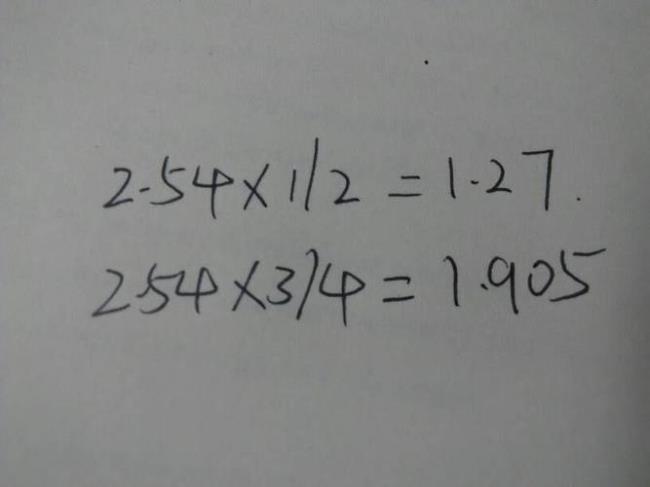 2.54×1/2=1.27.
2.54×3/4=1.905